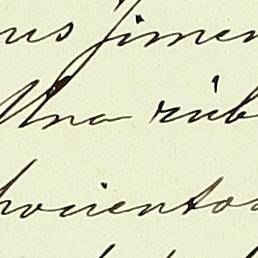 us Jimen
Una rúb
hocientos